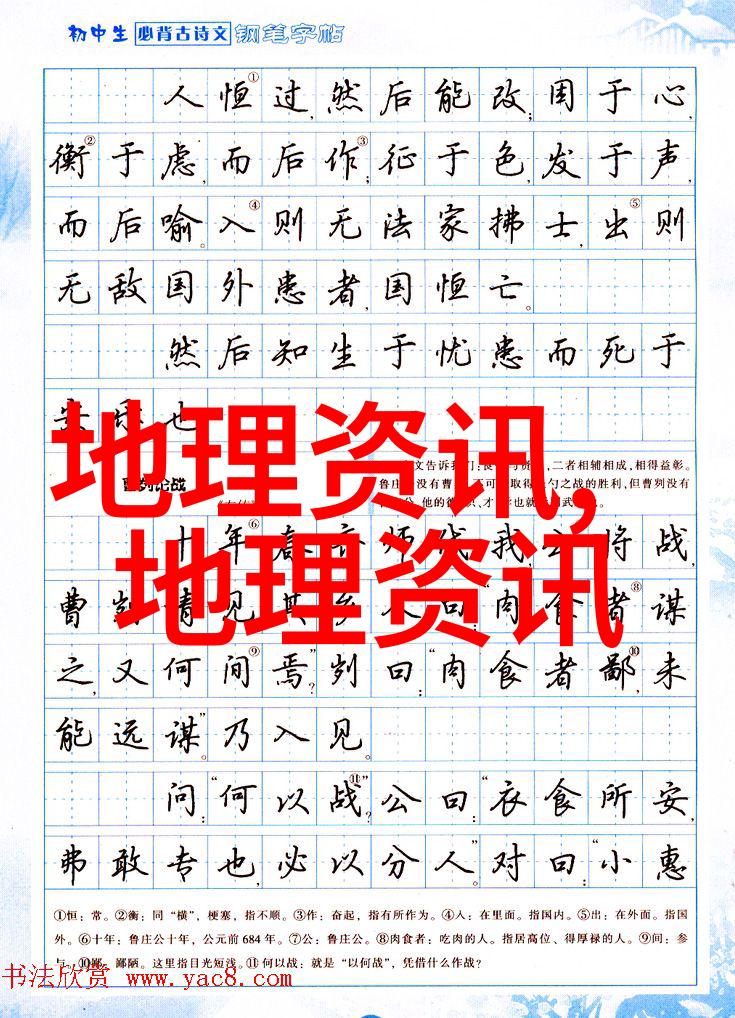 初中生 必背古诗文 钢笔字帖
人恒①过,然后能改;困于心,
衡②于虑,而后作③;征于色,发于声,
而后喻。入④则无法家拂士,出⑤则
无敌国外患者,国恒亡。
然后知生于忧患而死于
安乐也
地理资讯,
文告诉我们:良 二者相辅相成,相得益彰。
曹刿论战
鲁庄 没有曹 不可 取得 勺之战的胜利,但曹刿没有
公,他的德 才 也就 武
十年⑥春 齐师伐我,公将战,
地理资讯
曹刿请见其乡人曰:“肉食者⑧谋
之,又何间⑨焉?”刿曰:“肉食者鄙⑩,未
能远谋。”乃入见。
问:“何以战⑪?”公曰:“衣食所安,
弗敢专也,必以分人。”对曰:“小惠
①恒:常。②衡:同“横”,梗塞,指不顺。③作:奋起,指有所作为。④入:在里面。指国内。⑤出:在外面。指国
外。⑥十年:鲁庄公十年,公元前684年。⑦公:鲁庄公。⑧肉食者:吃肉的人。指居高位、得厚禄的人。⑨间:参
与。⑩鄙:鄙陋。这里指目光短浅。⑪何以战:就是“以何战”,凭借什么作战?
书法欣赏 www.yac8.com